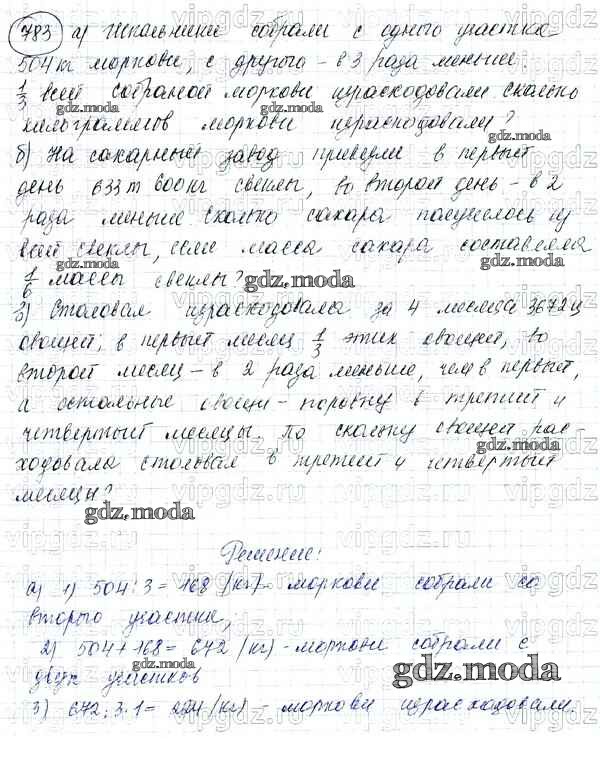 783 а) Школьники собрали с одного участка
504 кг моркови, с другого - в 3 раза меньше.
1/3 всей собраной моркови израсходовали сколько
килограммов моркови израсходовали?
б) На сахарный завод привезли в первый
день 633 т 600 кг свеклы, во второй день - в 2
раза меньше. Сколько сахара получилось из
всей свеклы, если масса сахара составляла
1/6 массы свеклы?
в) Столовая израсходовала за 4 месяца 3672 ц
овощей; в первый месяц 1/3 этих овощей, во
второй месяц - в 2 раза меньше, чем в первый,
а остальные овощи - поровну в третий и
четвертый месяцы. По скольку овощей рас-
ходовала столовая в третий и четвертый
месяцы?
Решение:
а) 1) 504 : 3 = 168 (кг) - моркови собрали со
второго участка,
2) 504 + 168 = 672 (кг) - моркови собрали с
двух участков
3) 672 : 3 · 1 = 224 (кг) - моркови израсходовали.
gdz.moda
gdz.moda
gdz.moda
gdz.moda
gdz.moda
gdz.moda
gdz.moda
gdz.moda
gdz.moda
gdz.moda
gdz.moda
vipgdz.ru